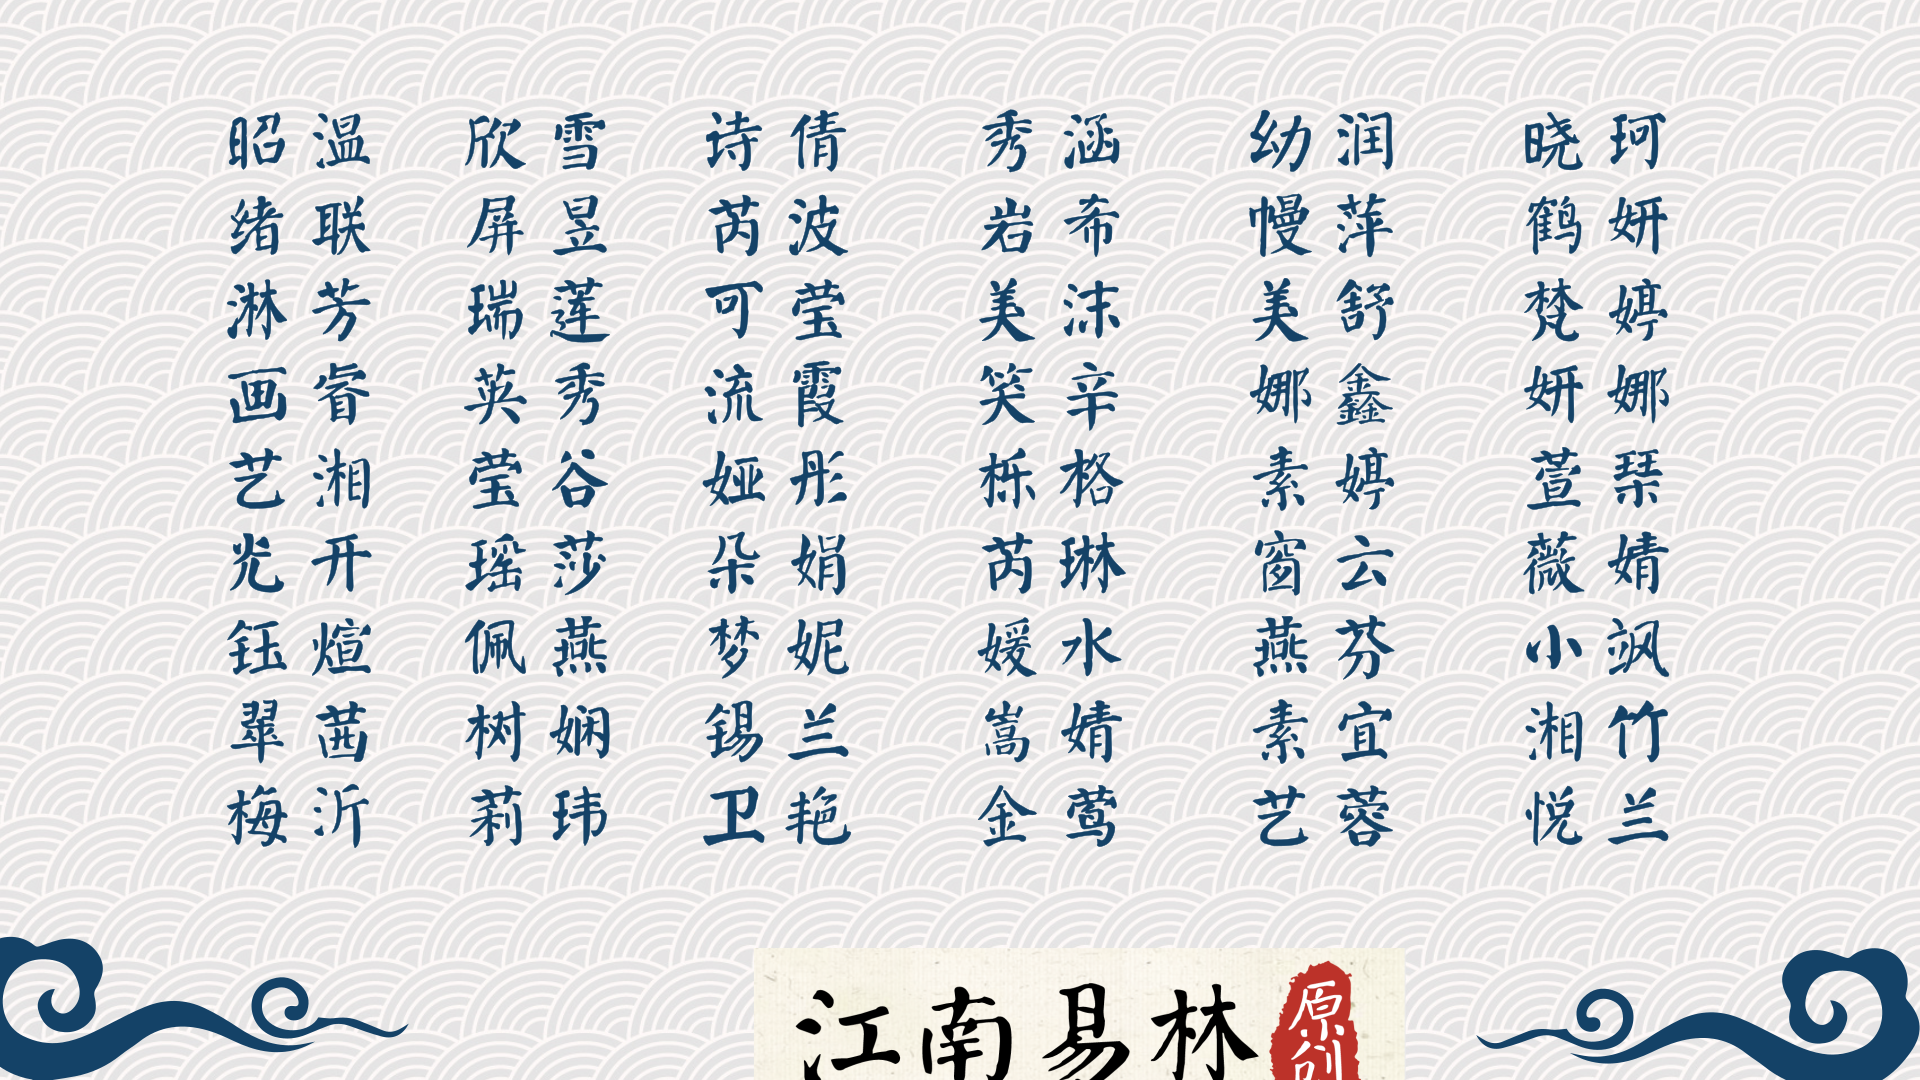 昭温 欣雪 诗倩 秀涵 幼润 晓珂
绪联 屏昱 芮波 岩希 幔萍 鹤妍
淋芳 瑞莲 可莹 美沫 美舒 梵婷
画睿 英秀 流霞 笑辛 娜鑫 妍娜
艺湘 莹谷 娅彤 栎格 素婷 萱琹
光开 瑶莎 朵娟 芮琳 窗云 薇婧
钰煊 佩燕 梦妮 媛水 燕芬 小飒
翠茜 树娴 锡兰 嵩婧 素宜 湘竹
梅沂 莉玮 卫艳 金莺 艺蓉 悦兰
江南易林 原创